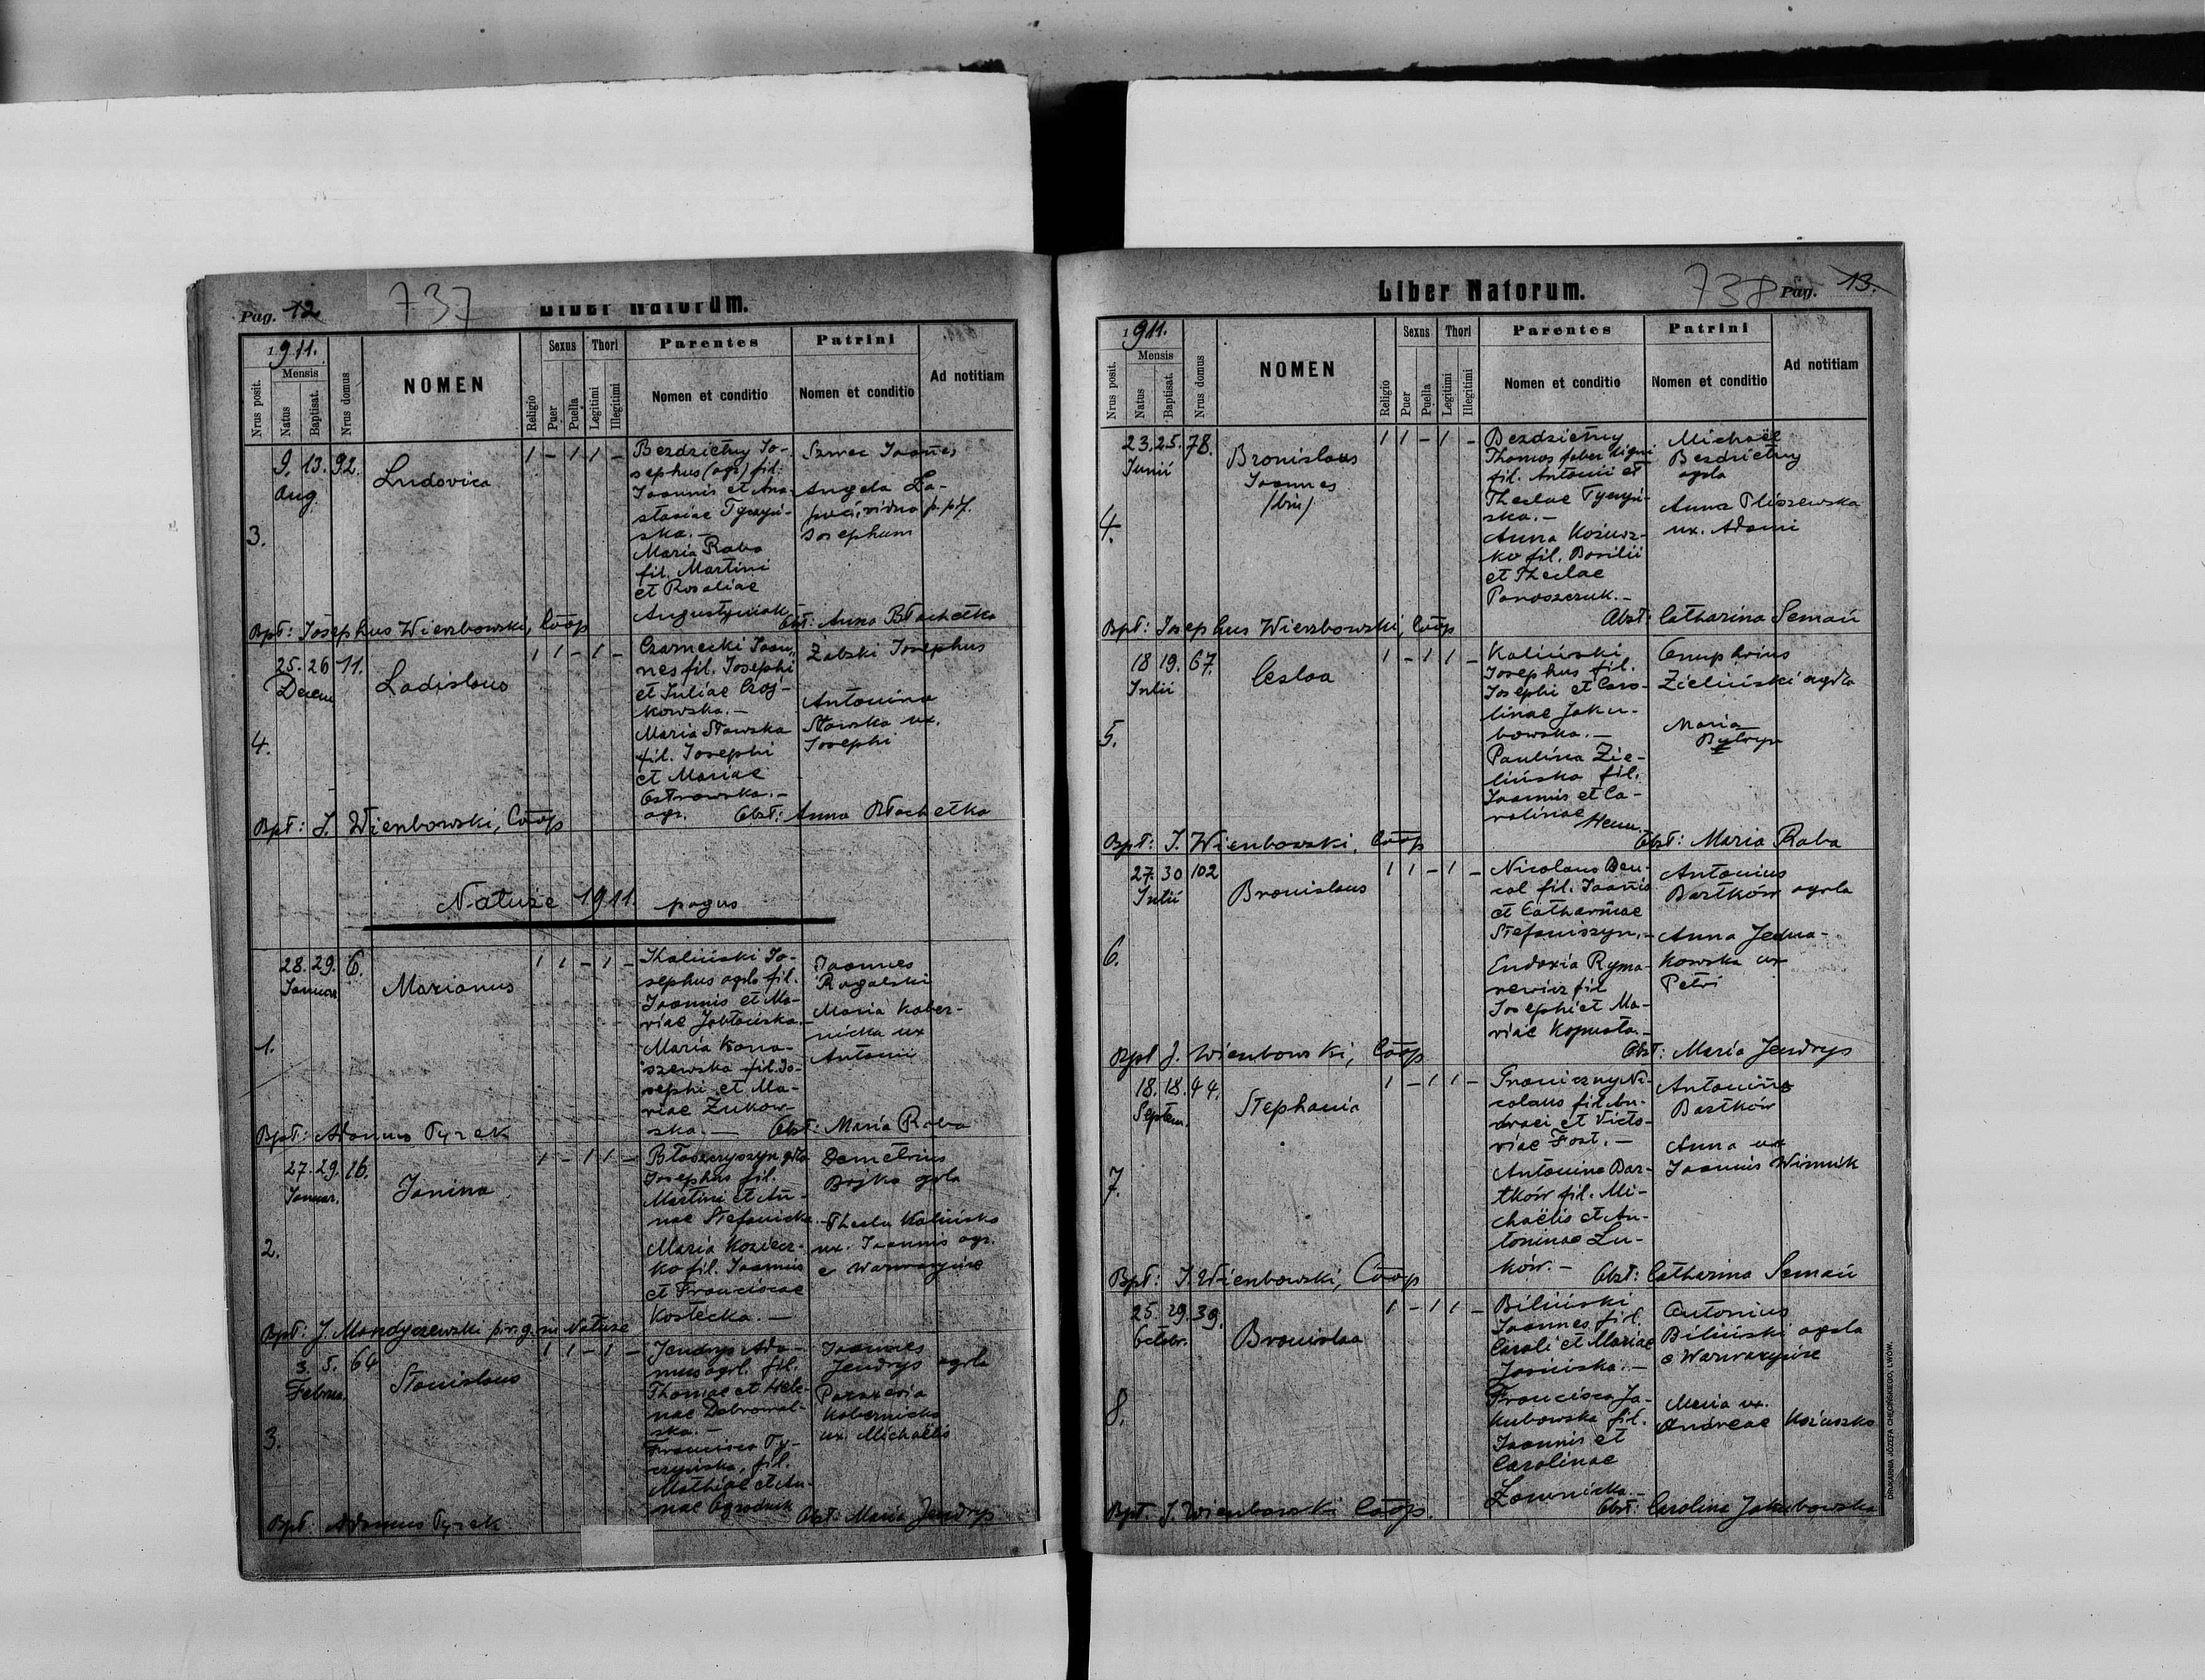 Pag. 12
737
Liber Natorum.
1911.
Nrus posit.
Mensis
Natus
Baptisat.
Nrus domus
NOMEN
Religio
Sexus
Puer
Puella
Thori
Legitimi
Illegitimi
Parentes
Nomen et conditio
Patrini
Nomen et conditio
Ad notitiam
3.
9. 13. 92.
Aug.
Ludovica
1 - 1 1 -
Bezdzietny Jo-
sephus (agr.) fil.
Joannis et Ana-
stasiae Tyczyń-
ska. -
Maria Raba
fil. Martini
et Rosaliae
Augustyniak
Szwec Joannes
Angela
Josephum
Bpt: Josephus Wierzbowski, Coop
Obst: Anna Błachetka
4.
25. 26 11.
Decem
Ladislaus
1 1 - 1 -
Czarnecki Joan-
nes fil. Josephi
et Juliae Czaj-
kowska. -
Maria Stawska
fil. Josephi
et Mariae
Ostrowska. -
agr.
Żabski Josephus
Antonina
Stawska ux.
Josephi
Bpt: J. Wierzbowski, Coop
Obst: Anna Błachetka
Natuże 1911. pagus
1.
28. 29. 6.
Januar.
Marianus
1 1 - 1 -
Kaliński Jo-
sephus agrla fil.
Joannis et Ma-
riae Jabłońska. -
Maria Kona-
szewska fil. Jo-
sephi et Ma-
riae Żukow-
ska. -
Joannes
Rogalski
Maria Kober-
nicka ux
Antonii
Bpt: Adamus Tyrek
Obst: Maria Raba
2.
27. 29. 16.
Januar.
Janina
1 - 1 1 -
Błaszczyszyn
Josephus fil.
Martini et An-
nae Stefanicka. -
Maria
fil. Joannis
et Franciscae
Kostecka. -
Demetrius
Bojko
Thecla Kalińska
ux. Joannis agr.
e
Bpt: J. Mandyczewski in Natuże
3.
3. 5. 64
Februa.
Stanislaus
1 1 - 1 -
Jendrys Ada-
mus agrl. fil.
Thomae et Hele-
nae Dobrowol-
ska. -
Francisca Ty-
czyńska, fil.
Mathiae et An-
nae Ogrodnik
Joannes
Jendrys agrla
Paraxevia
Kobernicka
ux. Michaëlis
Bpt: Adamus Tyrek
Obst: Maria Jendrys
Liber Natorum.
738
Pag. 13.
1911.
Nrus posit.
Mensis
Natus
Baptisat.
Nrus domus
NOMEN
Religio
Sexus
Puer
Puella
Thori
Legitimi
Illegitimi
Parentes
Nomen et conditio
Patrini
Nomen et conditio
Ad notitiam
4.
23. 25. 78.
Junii
Bronislaus
Joannes
(bin)
1 1 - 1 -
Bezdzietny
Thomas faber ligni
fil. Antonii et
Theclae Tyczyń-
ska. -
Anna Kożusz-
ko fil. Basilii
et Theclae
Panaszczuk. -
Michaël
Bezdzietny
agrla
Anna Pliszewska
ux. Adami
Bpt: Josephus Wierzbowski, Coop
Obst: Catharina Semań
5.
18 19. 67.
Julii
Ceslaa
1 - 1 1 -
Kaliński
Josephus fil.
Josephi et Caro-
linae Jaku-
bowska. -
Paulina Zie-
lińska fil.
Joannis et Ca-
rolinae
Onuphrius
Zieliński agrla
Maria
Bpt: J. Wierzbowski, Coop
Obst: Maria Raba
6.
27. 30 102
Julii
Bronislaus
1 1 - 1 -
Nicolaus Ben-
cal fil. Joannis
et Catharinae
Stefaniszyn. -
Eudoxia Ryma-
rewicz fil
Josephi et Ma-
riae Kapusta. -
Antonius
Bartków agrla
Anna Jedna-
kowska ux
Petri
Bpt J. Wierzbowski, Coop
Obst: Maria Jendrys
7.
18. 18. 44.
Septem.
Stephania
1 - 1 1 -
Graniczny Ni-
colaus fil. An-
dreae et Victo-
riae Fost. -
Antonina Bar-
tków fil. Mi-
chaëlis et An-
toninae Lu-
ków. -
Antonina
Bartków
Anna ux
Joannis Wismik
Bpt: J. Wierzbowski, Coop
Obst: Catharina Semań
8.
25. 29. 39.
Octobr.
Bronislaa
1 - 1 1 -
Biliński
Joannes fil.
Caroli et Mariae
Jasińska. -
Francisca Ja-
kubowska fil.
Joannis et
Carolinae
Antonius
Biliński agrla
e
Maria ux.
Andreae Kożuszko
Bpt. J. Wierzbowski Coop.
Obst: Carolina Jakubowska
DRUKARNIA JÓZEFA CHĘCIŃSKIEGO, LWÓW.